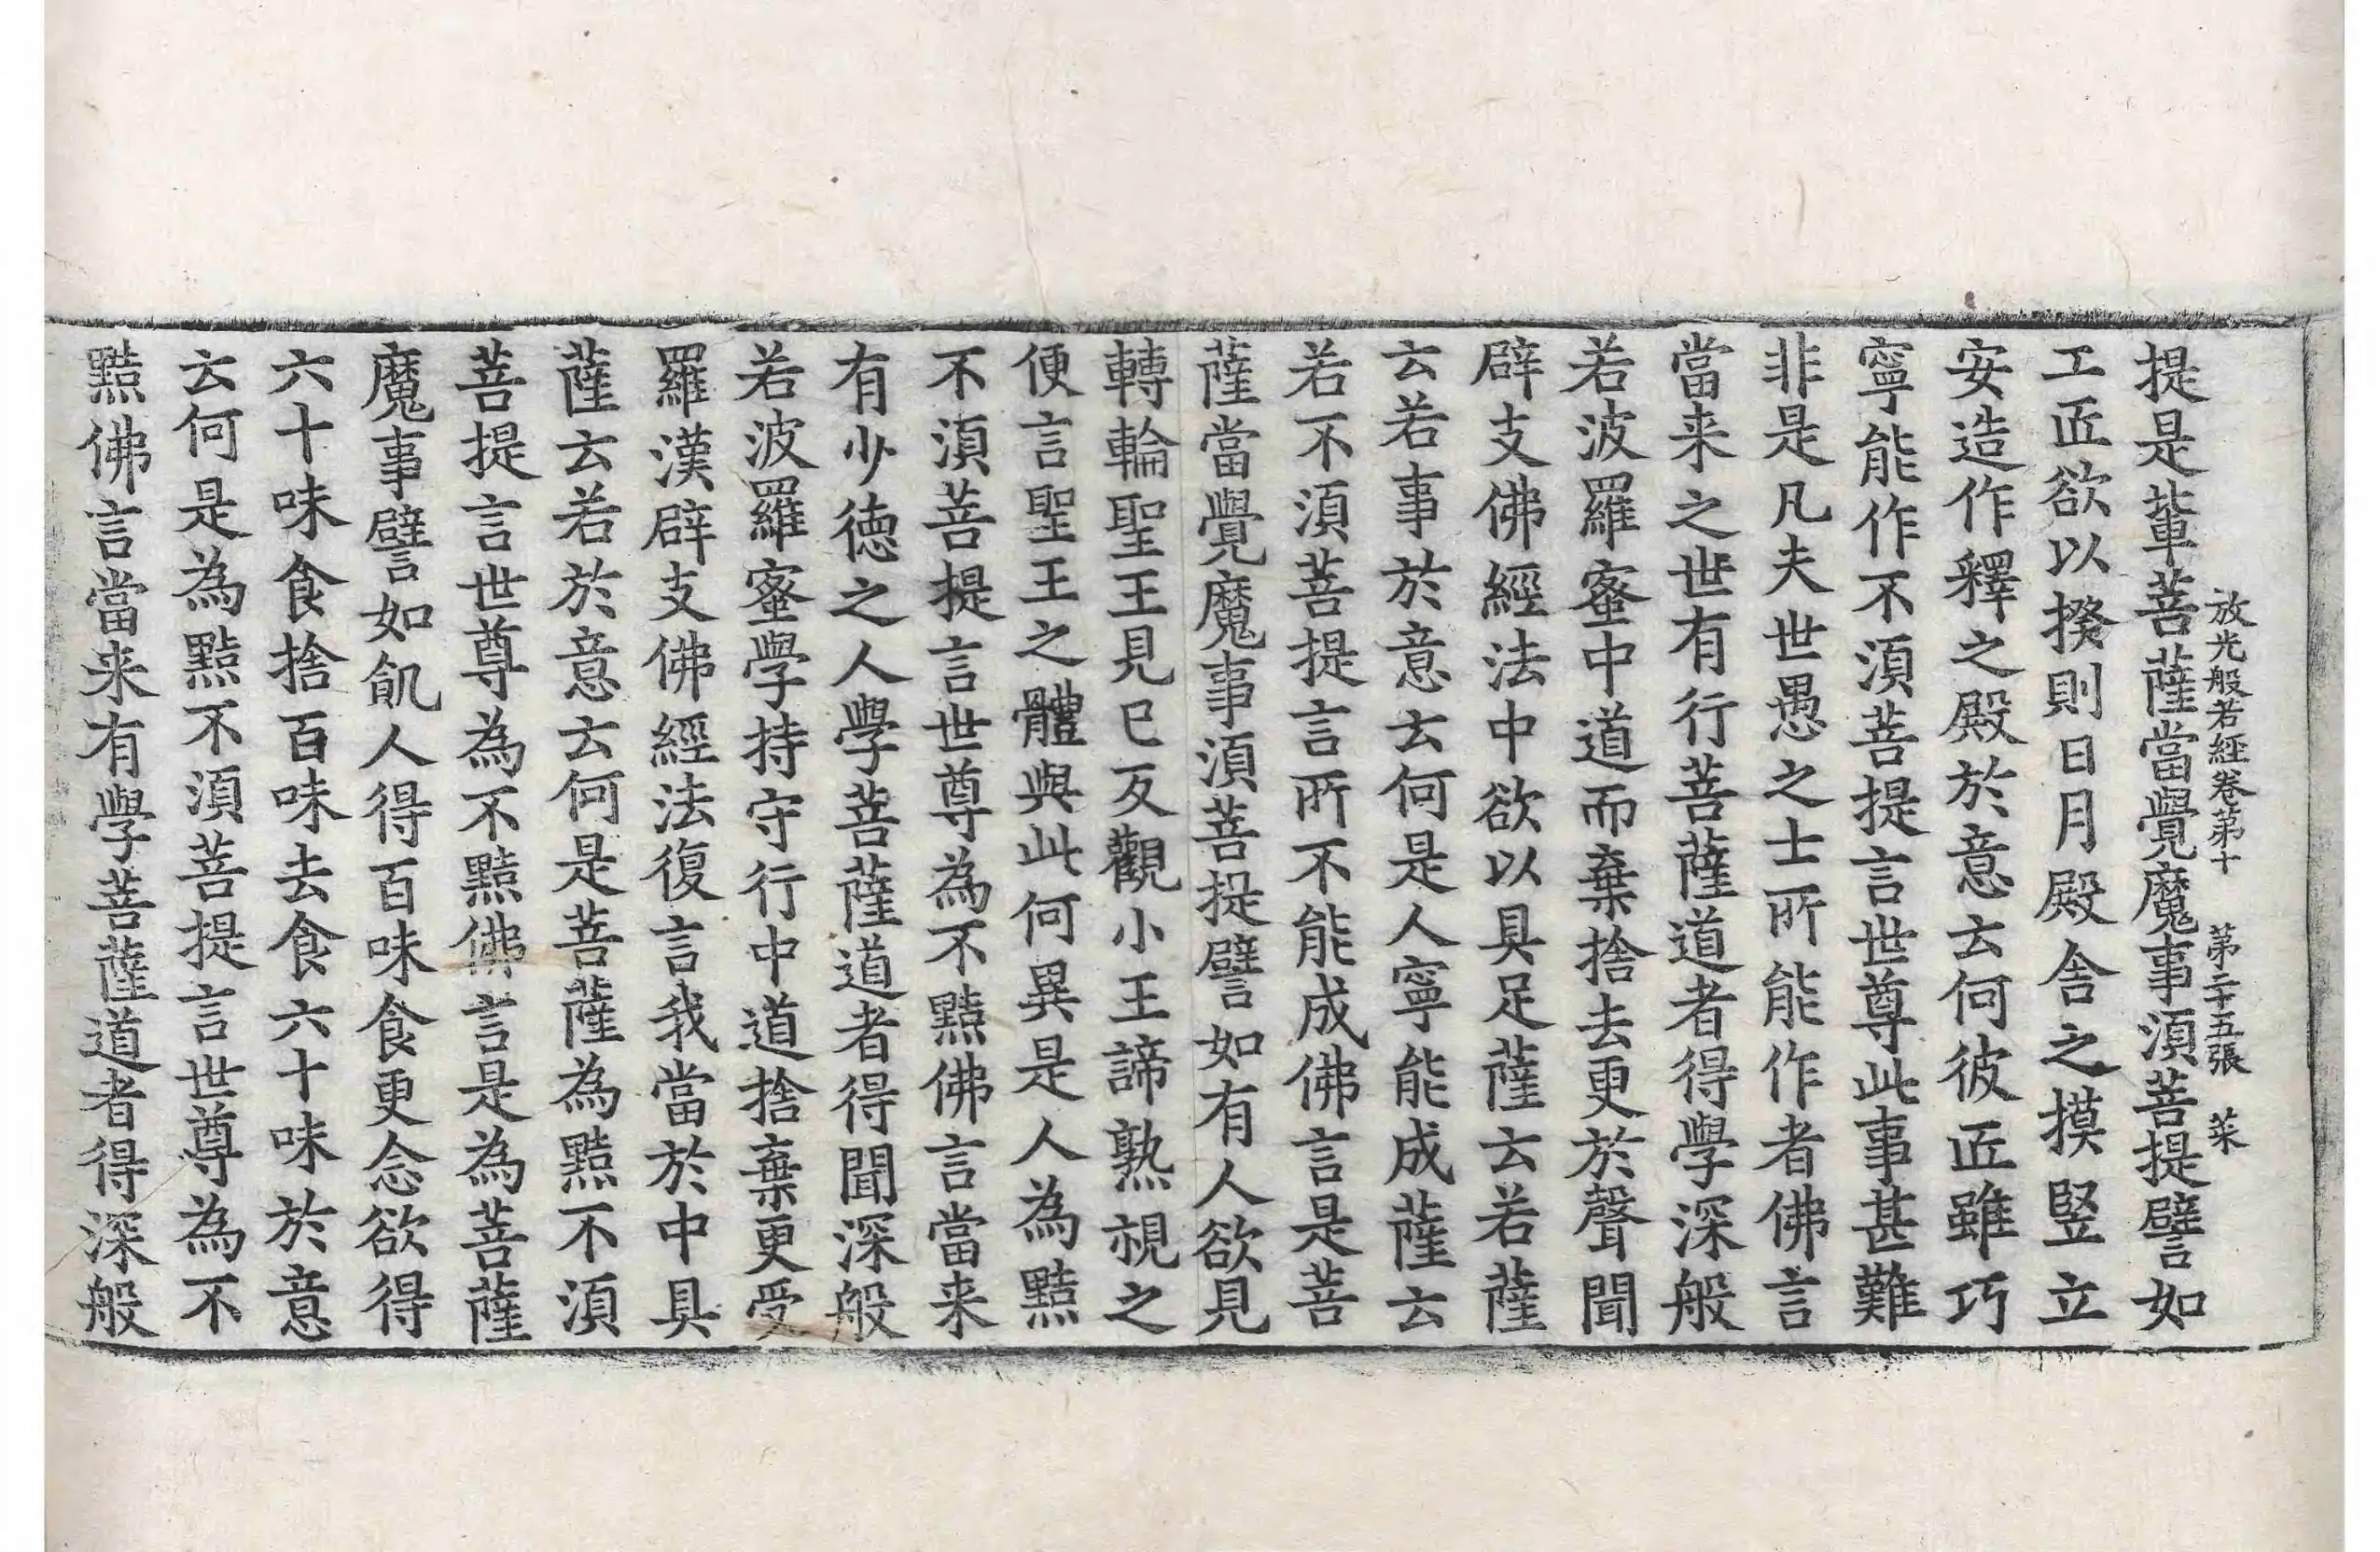 放光般若經卷第十　第二十五張　菜
提是輩菩薩當覺魔事須菩提譬如
工匠欲以揆則日月殿舍之摸竪立
安造作釋之殿於意云何彼匠雖巧
寧能作不須菩提言世尊此事甚難
非是凡夫世愚之士所能作者佛言
當来之世有行菩薩道者得學深般
若波羅蜜中道而棄捨去更於聲聞
辟支佛經法中欲以具足薩云若薩
云若事於意云何是人寧能成薩云
若不須菩提言所不能成佛言是菩
薩當覺魔事須菩提譬如有人欲見
轉輪聖王見已反觀小王諦熟視之
便言聖王之體與此何異是人為黠
不須菩提言世尊為不黠佛言當来
有少德之人學菩薩道者得聞深般
若波羅蜜學持守行中道捨棄更受
羅漢辟支佛經法復言我當於中具
薩云若於意云何是菩薩為黠不須
菩提言世尊為不黠佛言是為菩薩
魔事譬如飢人得百味食更念欲得
六十味食捨百味去食六十味於意
云何是為黠不須菩提言世尊為不
黠佛言當来有學菩薩道者得深般